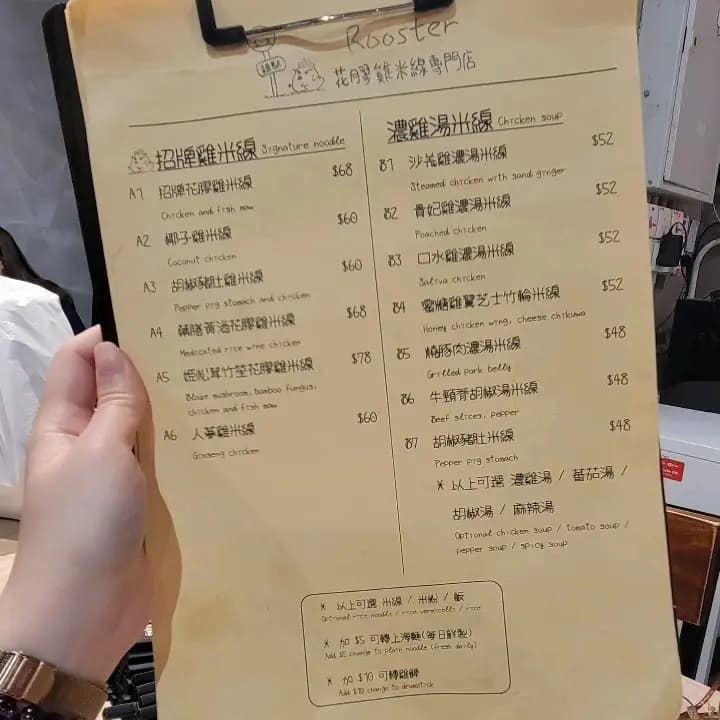 Rooster
花膠雞米線專門店
招牌雞米線 Signature noodle
A1 招牌花膠雞米線 $68
Chicken and fish maw
A2 椰子雞米線 $60
Coconut chicken
A3 胡椒豬肚雞米線 $60
Pepper pig stomach and chicken
A4 藥膳黃酒花膠雞米線 $68
Medicated rice wine chicken
A5 姬松茸竹笙花膠雞米線 $78
Blaze mushroom, bamboo fungus,
chicken and fish maw
A6 人蔘雞米線 $60
Ginseng chicken
濃雞湯米線 Chicken soup
B1 沙羌雞濃湯米線 $52
Steamed chicken with sand ginger
B2 貴妃雞濃湯米線 $52
Poached chicken
B3 口水雞濃湯米線 $52
Saliva chicken
B4 蜜糖雞翼芝士竹輪米線 $52
Honey chicken wing, cheese chikuwa
B5 燒豚肉濃湯米線 $48
Grilled pork belly
B6 牛頸脊胡椒湯米線 $48
Beef slices, pepper
B7 胡椒豬肚米線 $48
Pepper pig stomach
* 以上可選 濃雞湯 / 蕃茄湯 /
胡椒湯 / 麻辣湯
Optional chicken soup / tomato soup /
pepper soup / spicy soup
* 以上可選 米線 / 米粉 / 飯
Optional rice noodle / rice vermicelli / rice
* 加 $5 可轉上海麵(每日鮮製)
Add $5 change to plain noodle (fresh daily)
* 加 $10 可轉雞髀
Add $10 change to drumstick